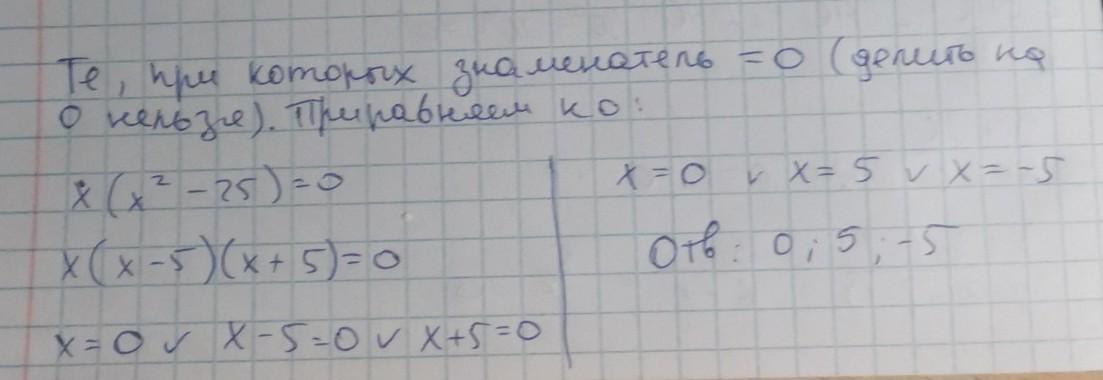 Те, при которых знаменатель = 0 (делить на
0 нельзя). Приравняем к 0:
x(x² - 25) = 0
x(x - 5)(x + 5) = 0
x = 0 ∨ x - 5 = 0 ∨ x + 5 = 0
x = 0 ∨ x = 5 ∨ x = -5
Отв: 0; 5; -5